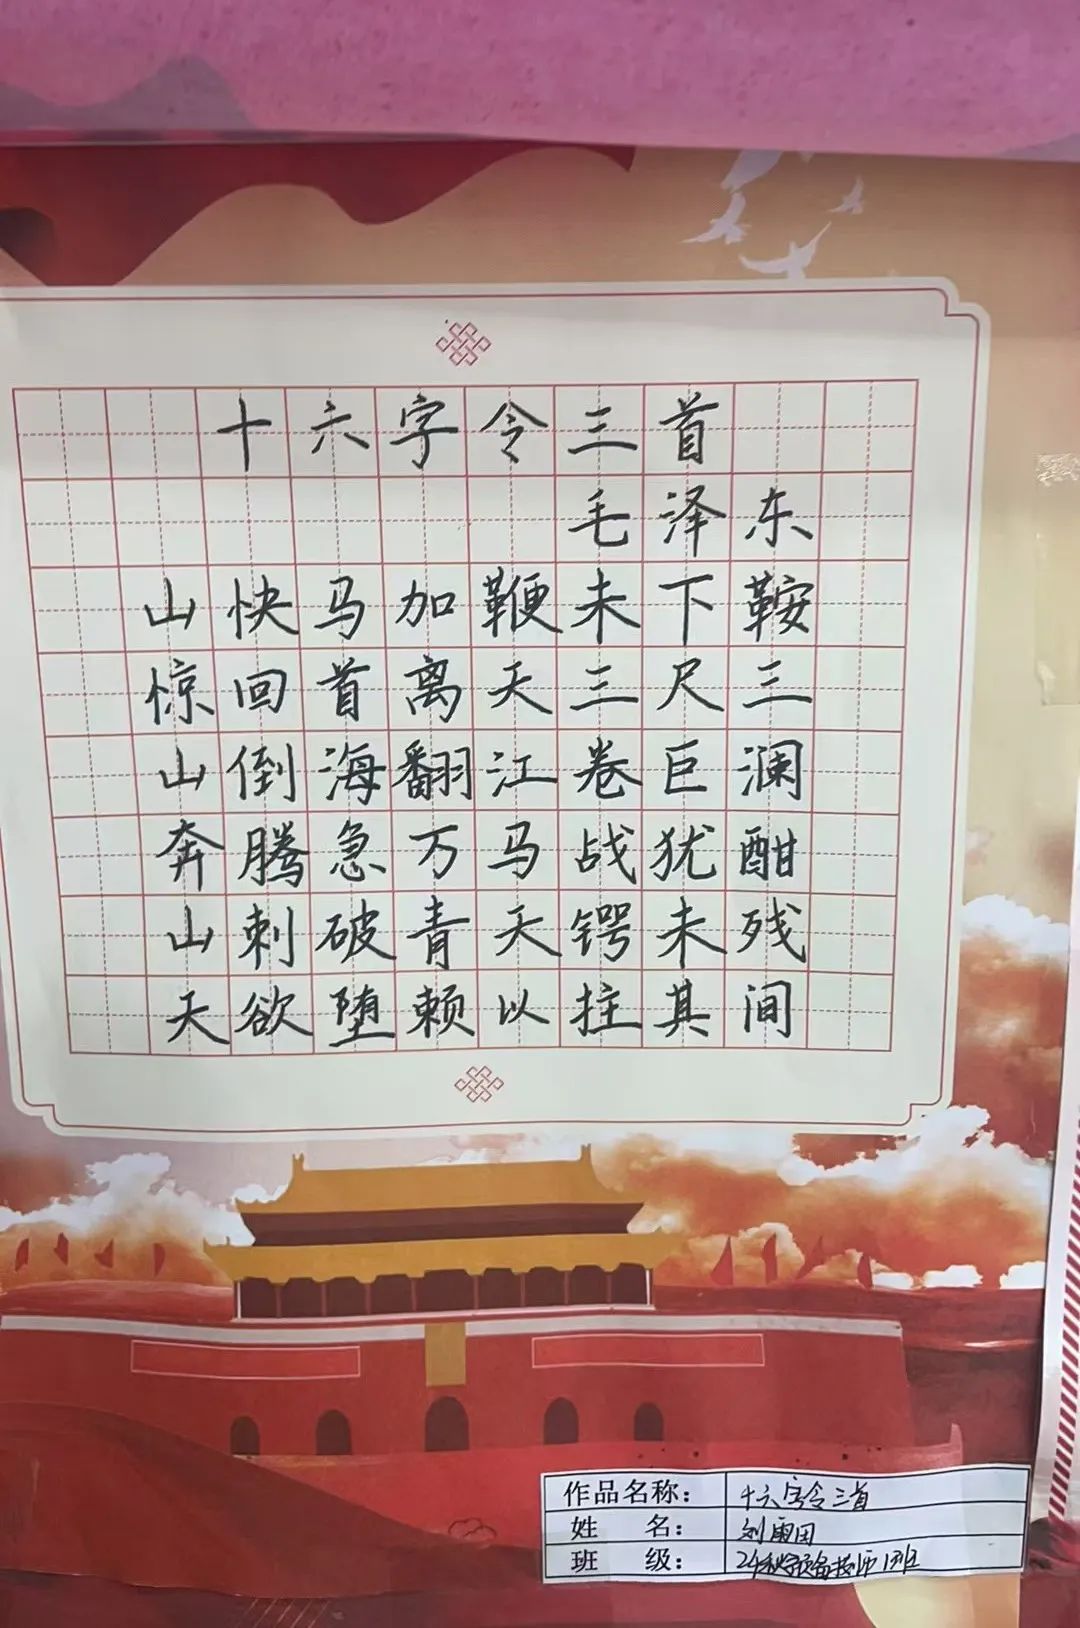 十六字令三首
毛泽东
山快马加鞭未下鞍
惊回首离天三尺三
山倒海翻江卷巨澜
奔腾急万马战犹酣
山刺破青天锷未残
天欲堕赖以拄其间
作品名称： 十六字令三首
姓 名： 刘雨田
班 级： 24秋预备技师1班